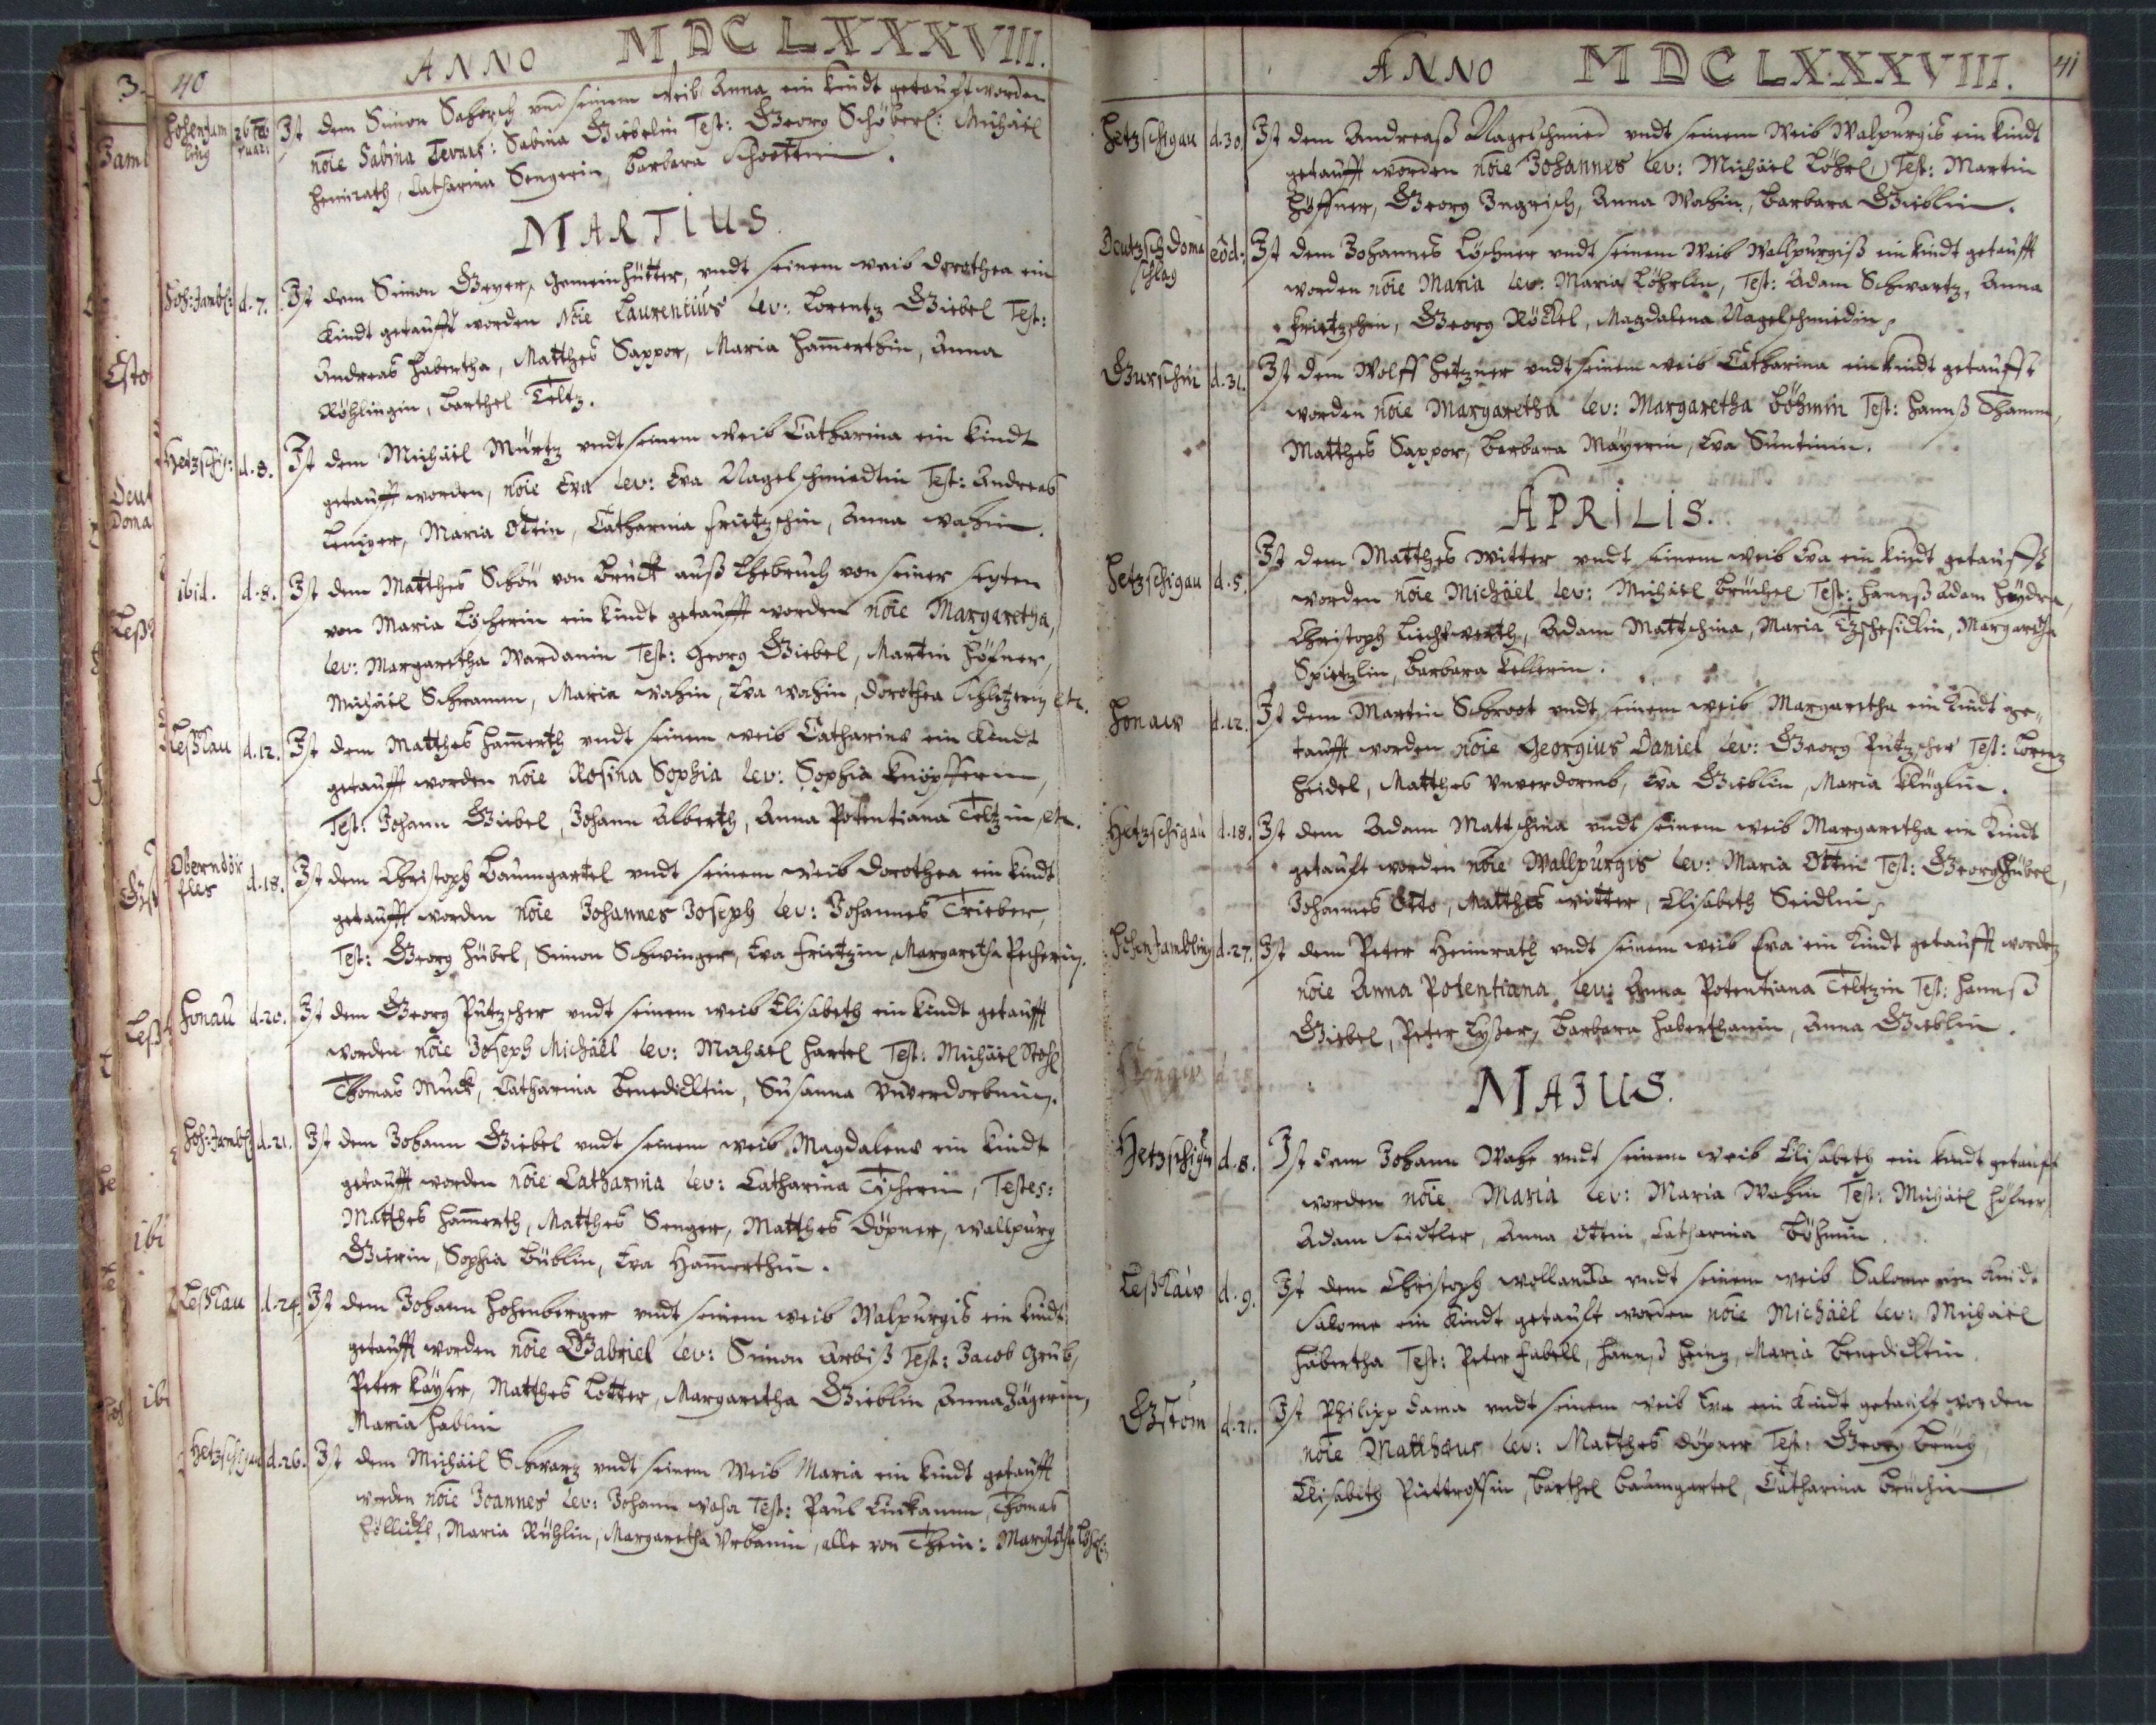 40
ANNO MDCLXXXVIII.
Hohenjam
ling
26 Feb
ruar:
Ist dem Simon Sahorsch und seinem weib Anna ein kindt getaufft worden
nōie Sabina Levans: Sabina Giebelin Test: Georg Schöberl: Michäel
Heinrath, Catharina Sengerin, Barbara Schrottin.
MARTIUS.
Hoh: Jambl: d. 7. Ist dem Simon Geyer, Gemeinhütter, undt seinem weib Dorothea ein
Kindt getaufft worden Nōie Laurentius Lev: Lorentz Giebel Test:
Andreas Habertha, Matthes Sappor, Maria Ham̄erthin, Anna
Röhlingin, Barthel Teltz.
Hetzschi: d. 8. Ist dem Michäel Mürtz undt seinem weib Catharina ein kindt
getaufft worden, nōie Eva Lev: Eva Nagelschmiedtin Test: Andreas
Leniger, Maria Ottin, Catharina Frietzschin, Anna Wahin.
ibid. d. 8. Ist dem Matthes Schön von Bruck auß Ehebruch von seiner
von Maria Löcherin ein kindt getaufft worden nōie Margaretha,
Lev: Margaretha Wardanin Test: Georg Giebel, Martin Höfner,
Michäel Schramm, Maria Wahin, Eva Wahin, Dorothea Schletzerin, etc.
Leßkau d. 12. Ist dem Matthes Ham̄erth undt seinem weib Catharina ein Kindt
getaufft worden nōie Rosina Sophia Lev: Sophia Knöpfferin,
Test: Johann Giebel, Johann Alberth, Anna Potentiana Teltzin, etc.
Oberndör
ffes d. 18. Ist dem Christoph Baumgartel undt seinem weib Dorothea ein kindt
getaufft worden nōie Johannes Joseph Lev: Johannes Trieber,
Test: Georg Hübel, Simon Schwinger, Eva Frietzin, Margaretha Pecherin.
Honau d. 20. Ist dem Georg Putzscher undt seinem weib Elisabeth ein kindt getaufft
worden nōie Joseph Michäel Lev: Michael Hartel Test: Michäel Stöhl
Thomas Muck, Catharina Benedicktin, Susanna Unverdorbnin.
Hoh: Jambl: d. 21. Ist dem Johann Giebel undt seinem weib Magdalena ein kindt
getaufft worden nōie Catharina Lev: Catharina Tischerin, Testes:
Matthes Ham̄erth, Matthes Senger, Matthes Döpner, Wallpurg
Gierin, Sophia Büblin, Eva Ham̄erthin.
Leßkau d. 24. Ist dem Johann Hohenberger undt seinem weib Walpurgis ein kindt
getaufft worden nōie Gabriel Lev: Simon Arbiß Test: Jacob Grub,
Peter Käyser, Matthes Lotter, Margaretha Gieblin, Anna Jägerin,
Maria Hablin
Hetzschigau d. 26. Ist dem Michäel Schwarz undt seinem Weib Maria ein kindt getaufft
worden nōie Joannes Lev: Johann Waha Test: Paul Linkamm, Thomas
Maria Rühlin, Margaretha Urbanin, alle von Thein: Margaretha
ANNO MDCLXXXVIII. 41
Hetzschigau d. 30. Ist dem Andreaß Nagelschmied undt seinem Weib Walpurgis ein kindt
getaufft worden nōie Johannes Lev: Michäel Löhrl, Test: Martin
Höffner, Georg Ingrisch, Anna Wahin, Barbara Gieblin.
Deutzsch Doma
schlag eōd: Ist dem Johannes Löchner undt seinem Weib Wallpurgiß ein kindt getaufft
worden nōie Maria Lev: Maria Löhrlin, Test: Adam Schwartz, Anna
Frietzschin, Georg Röckel, Magdalena Nagelschmiedin.
Gurschin d. 31. Ist dem Wolff Hetzner undt seinem weib Catharina ein kindt getaufft
worden nōie Margaretha Lev: Margaretha Böhmin Test: Hannß Thamm,
Matthes Sappor, Barbara Mäyerin, Eva Suntinin.
APRILIS.
Hetzschigau d. 5. Ist dem Matthes Witter undt seinem weib Eva ein kindt getaufft
worden nōie Michäel Lev: Michäel Brüchel Test: Hannß Adam Heydra,
Christoph Liechtwerth, Adam Mattschina, Maria Tzschesidlin, Margaretha
Spietzlin, Barbara Kellerin.
Honaw d. 12. Ist dem Martin Schroot undt seinem weib Margaretha ein kindt ge-
taufft worden nōie Georgius Daniel Lev: Georg Putzscher Test: Lorenz
Heidel, Matthes Unverdorb, Eva Gieblin, Maria Klüglin.
Hetzschigau d. 18. Ist dem Adam Mattschina undt seinem weib Margaretha ein Kindt
getaufft worden nōie Wallpurgis Lev: Maria Ottin Test: Georg Hübel,
Johannes Otto, Matthes Witter, Elisabeth Seidlin,
Hohenjambling d. 27. Ist dem Peter Heinrath undt seinem weib Eva ein Kindt getaufft worden
nōie Anna Potentiana Lev: Anna Potentiana Teltzin Test: Hannß
Giebel, Peter Lyßer, Barbara Haberthanin, Anna Gieblin.
MAJUS.
Hetzschigau d. 8. Ist dem Johann Wahe undt seinem weib Elisabeth ein kindt getaufft
worden nōie Maria Lev: Maria Wahin Test: Michäel Höfner,
Adam Seidtler, Anna Ottin, Catharina Böhmin.
Leßkaw d. 9. Ist dem Christoph Wollancka undt seinem weib Salome ein kindt
Salome ein Kindt getaufft worden nōie Michäel Lev: Michäel
Habertha Test: Peter Fabell, Hannß Heinz, Maria Benedicktin.
Gstöm d. 21. Ist Philipp Dama undt seinem weib Eva ein Kindt getaufft worden
nōie Matthæus Lev: Matthes Döpner Test: Georg Bruch,
Elisabeth Pittroffin, Barthel Baumgartel, Catharina Bruchin